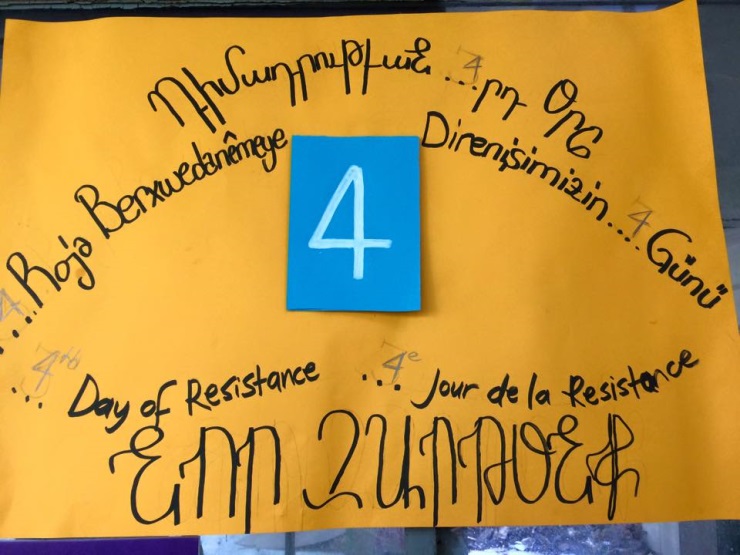 Դիմադրութեան ...4րդ Օրը
....4 Roja Berxwedanêmeye
4
Direnişimizin....4 Günü
...4th Day of Resistance
...4e Jour de la Resistance
ՆՈՐ ԶԱՐԹՕՆՔ